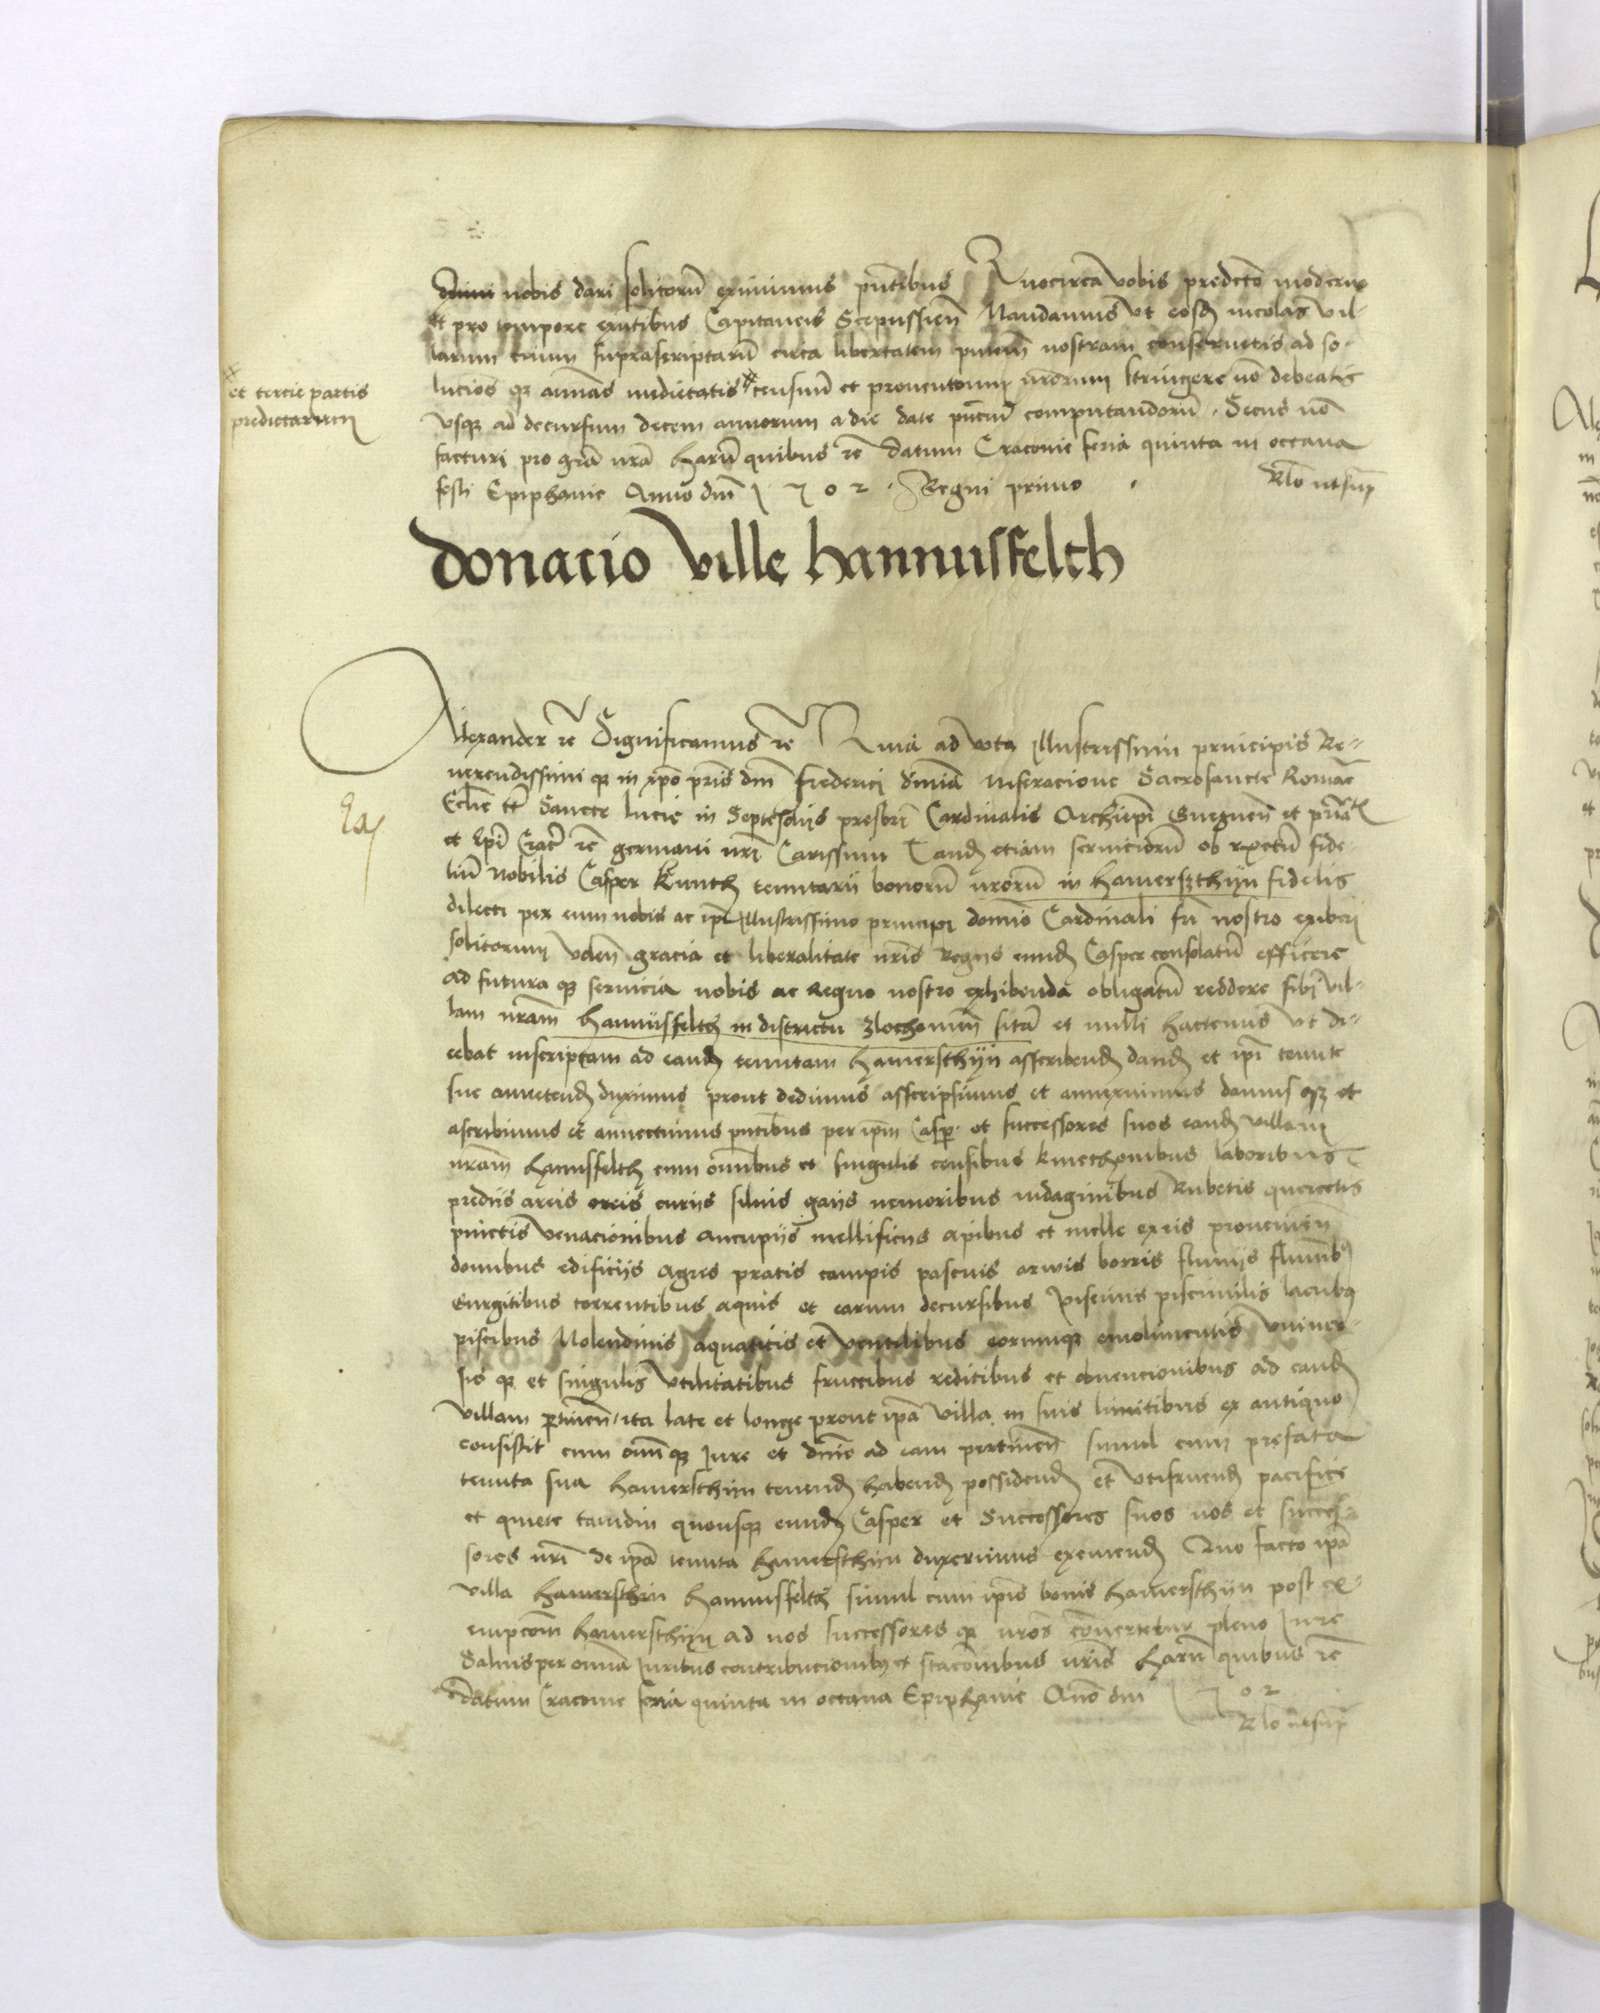 nobis dari solitorum eximimus pntibus Quocirca vobis predicto moderno
et pro tempore exntibus Capitaneis Scepussien Mandamus ut eosd incolas vil-
larum suprascriptaru circa libertatem pntem nostram conservetis ad so-
luciones q annuas medietatis censuum et proventuum nrorum stringere no debeatis
et tercie partis
predictarum
usq ad decursum decem annorum a die date pntium computandoru. Secus no
facturi pro gra nra Haru quibus rc datum Cracovie feria quinta in octava
festi Epiphanie Anno dni 1502. Regni primo
Rlo ut sup
Donacio Ville hannusfelth
Alexander rc Significamus rc Quia ad vota Illustrissimi principis Re-
verendissimi q in xpo pris dni Frederici divina Miseracione Sacrosancte Romane
Eccle tt Sancte lucie in Septesoliis presbri Cardinalis Archiepi Gneznen et
et Epi Crac rc germani nri Carissimi Tand etiam serviciorum ob respectum fide-
lium Nobilis Casper Kunth tenutarii bonoru nrorum in hamersthyn fidelis
dilecti per eum nobis ac ipi Illustrissimo principi domino Cardinali fri nostro exiberi
solitorum Volen gracia et liberalitate nris Regiis eund Casper consolatum efficere
ad futura q servicia nobis ac Regno nostro exhibenda obligatum reddere sibi vil-
lam nram hannusfelth in districtu Zlochovien sitam et nulli hactenus ut di-
cebat inscriptam ad eand tenutam hamersthyn asscribend dand et ipi tenute
sue annetend duximus prout dedimus asscripsimus et anneximus damus q et
ascribimus et annectimus pntibus per ipm Casper et successores suos eand villam
nram hannsfelth cum omnibus et singulis censibus kmethonibus laboribus
prediis areis curiis silvis gaiis nemoribus indaginibus Rubetis quercetis
pinetis venacionibus aucupiis mellificiis apibus et melle ex eis provenien
domibus edificiis agris pratis campis pascuis arvis borris fluviis flumib
Gurgitibus torrentibus aquis et earum decursibus piscinis piscinulis lacubus
piscibus Molendinis aquaticis et ventilibus eorumq emolimentis Univer-
sis q et singulis Utilitatibus fructibus reditibus et obvencionibus ad eand
villam ptinen ita late et longe prout ipa villa in suis limitibus ex antiquo
consistit cum omi q Jure et dnio ad eam pertinen simul cum prefata
tenuta sua hamersthin tenend habend possidend et utifruend pacifice
et quiete tamdiu quousq eund Casper et Successores suos nos et succes-
sores nri de ipa tenuta hamersthin duxerimus eximend Quo facto ipa
villa hamersthin hannusfelth simul cum ipis bonis hamersthyn post ex-
empcom hamersthyn ad nos successores q nros convertetur pleno Jure
Salvis per omnia Juribus contribucionibus et stacionibus nris Haru quibus rc
Datum Cracovie feria quinta in octava Epiphanie Anno dni 1502
Rlo ut sup